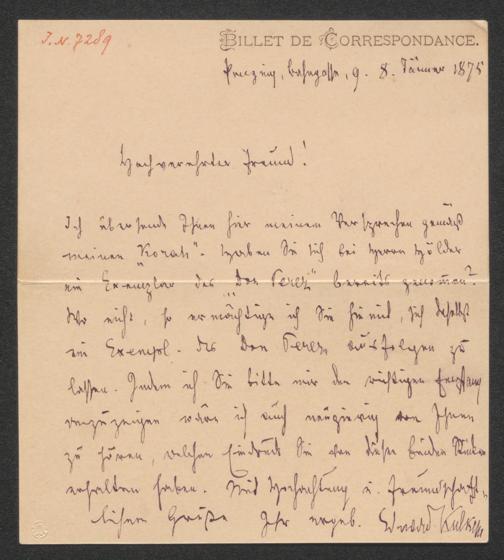 I. N. 7289
BILLET DE CORRESPONDANCE.
Penzing, Bahngasse, 9. 8. Jänner 1875
Hochverehrter Freund!
Ich übersende Ihnen hier meinem Versprechen gemäß
meinen "Korah". Haben Sie sich bei Herrn Hölder
ein Exemplar des "Don Perez" bereits genommen?
Wo nicht, so ermächtige ich Sie hiemit, sich daselbst
ein Exempl. des Don Perez ausfolgen zu
lassen. Indem ich Sie bitte mir den richtigen Empfang
anzuzeigen wäre ich auch neugierig von Ihnen
zu hören, welchen Eindruck Sie von diesen beiden
erhalten haben. Mit Hochachtung u. freundschaft-
lichem Gruße Ihr ergeb. Eduard Kulke